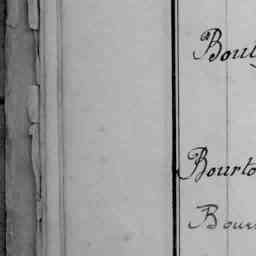 Boul
Bourto
Bour